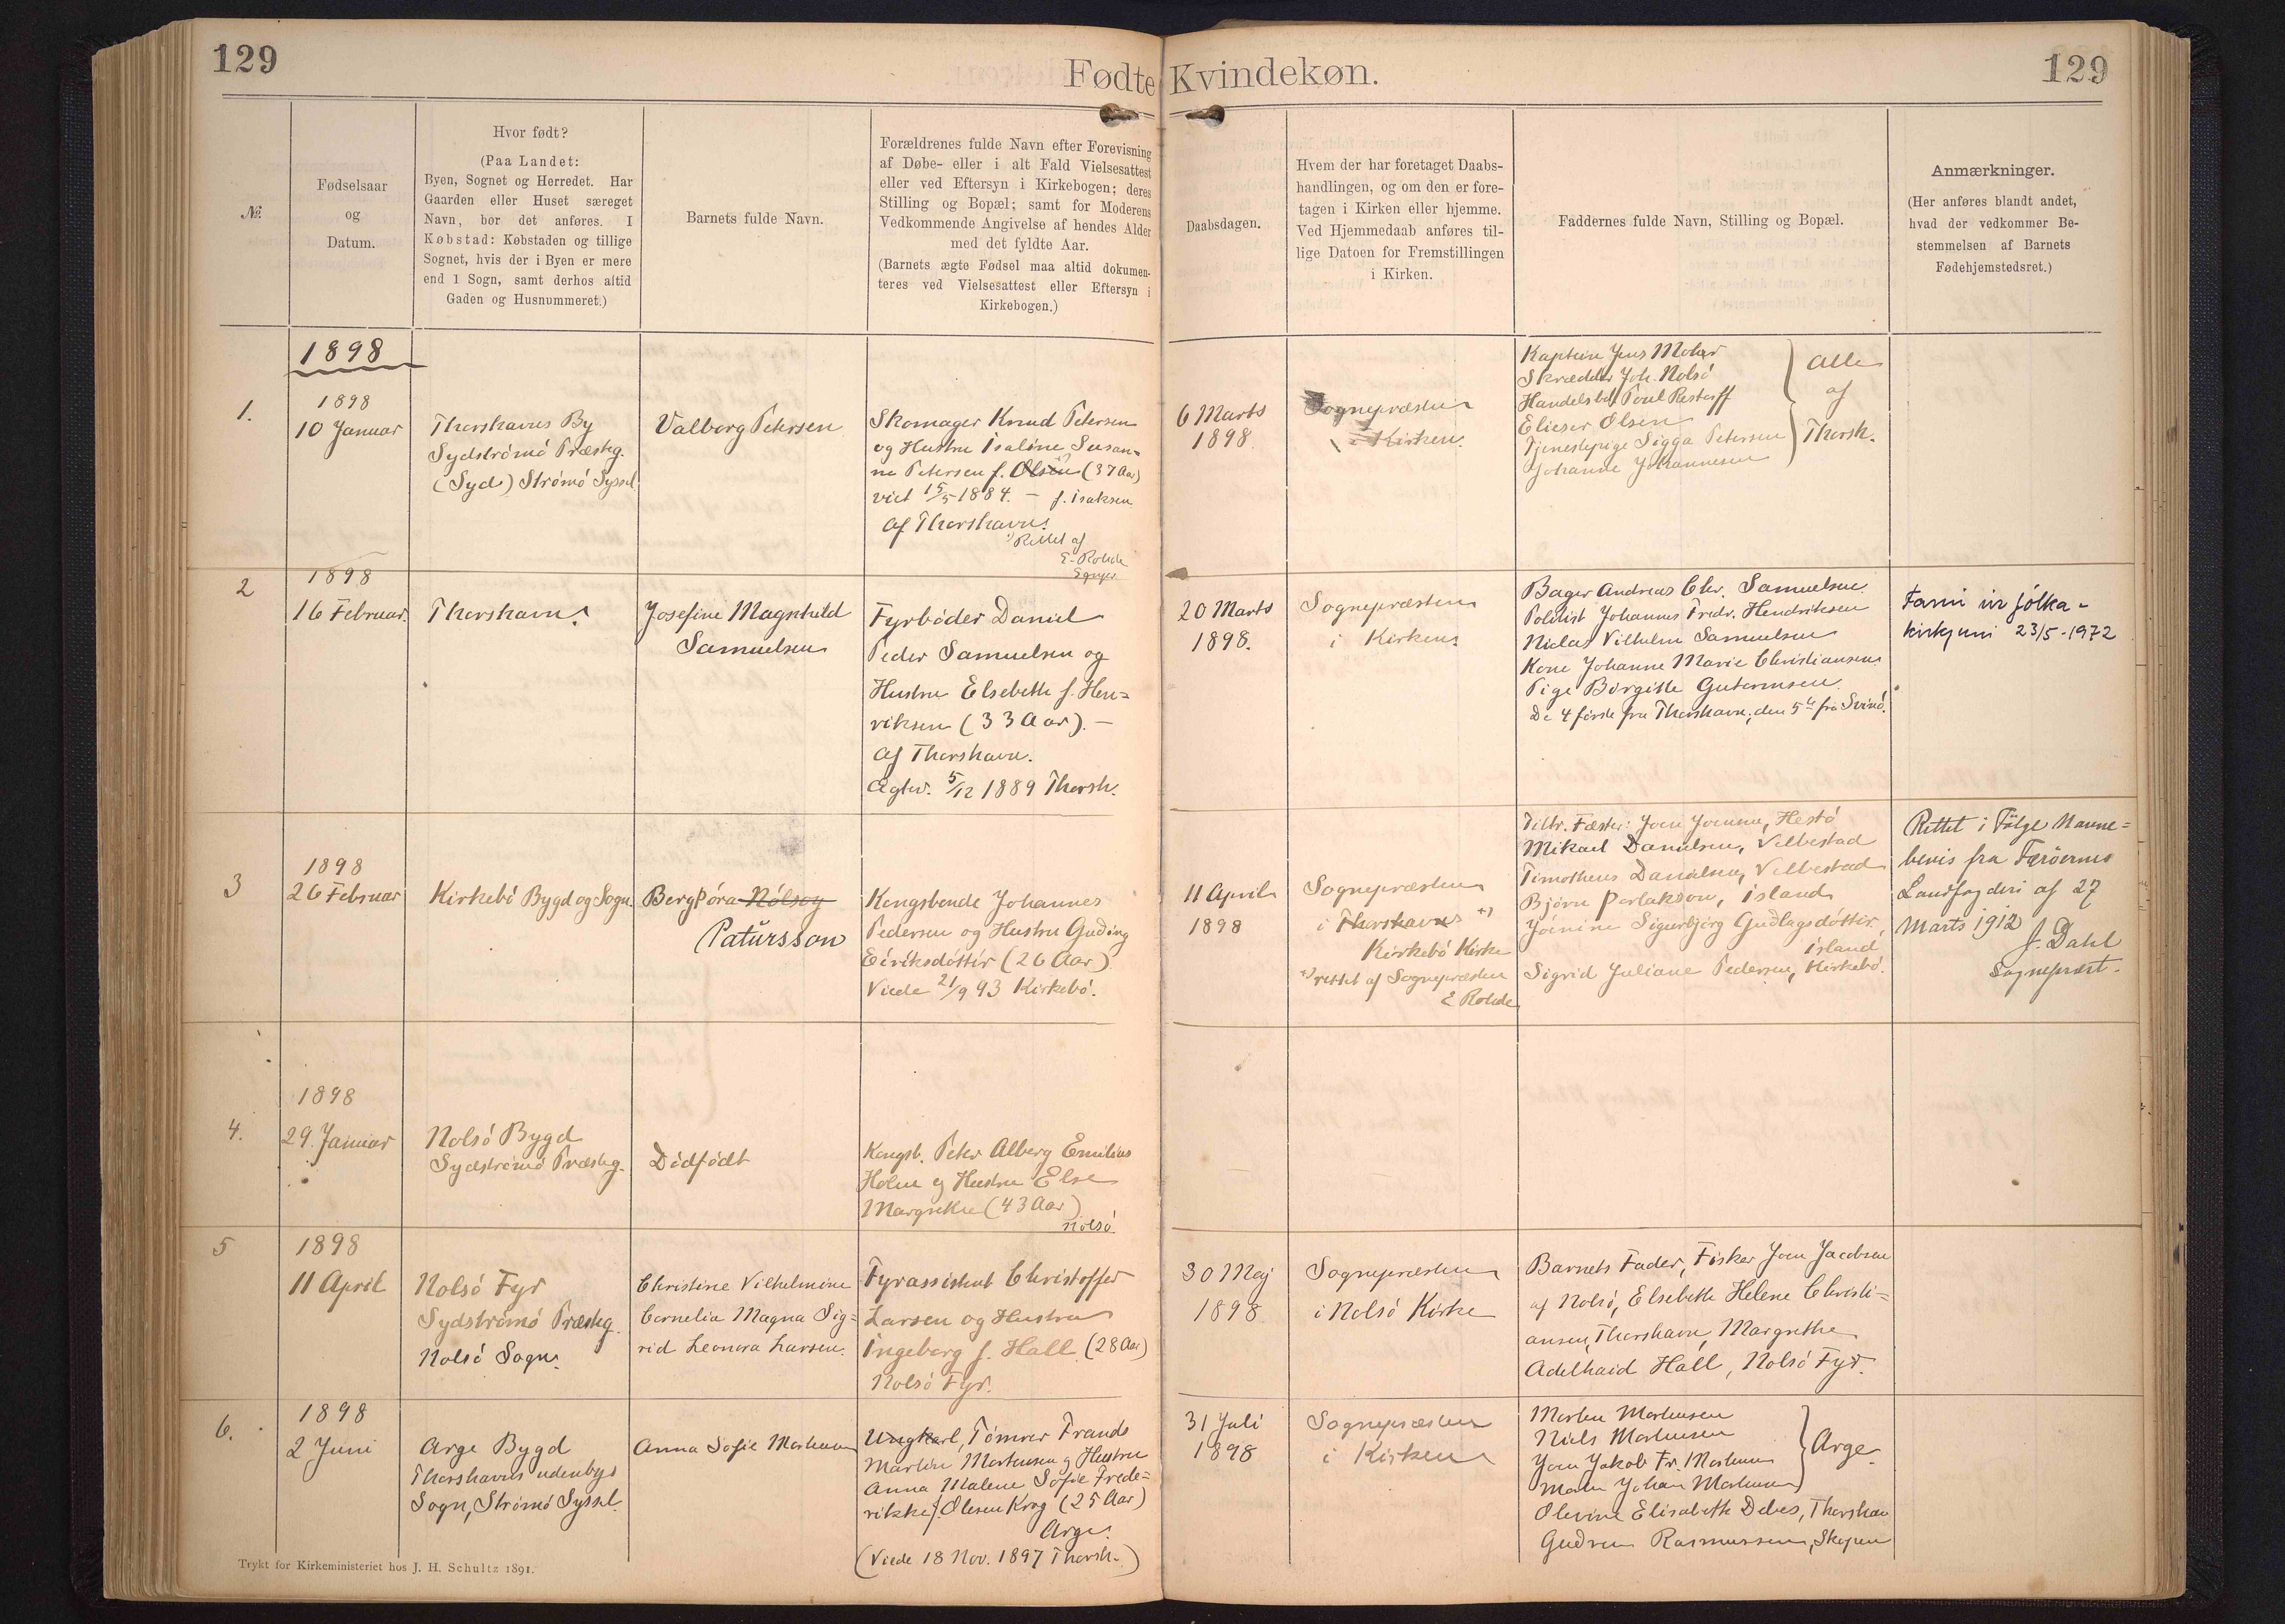 129
Fødte Kvindekøn.
129
№.
Fødselsaar
og
Datum.
Hvor født?
(Paa Landet:
Byen, Sognet og Herredet. Har
Gaarden eller Huset særeget
Navn, bør det anføres. I
Købstad: Købstaden og tillige
Sognet, hvis der i Byen er mere
end 1 Sogn, samt derhos altid
Gaden og Husnummeret.)
Barnets fulde Navn.
Forældrenes fulde Navn efter Forevisning
af Døbe- eller i alt Fald Vielsesattest
eller ved Eftersyn i Kirkebogen; deres
Stilling og Bopæl; samt for Moderens
Vedkommende Angivelse af hendes Alder
med det fyldte Aar.
(Barnets ægte Fødsel maa altid dokumen-
teres ved Vielsesattest eller Eftersyn i
Kirkebogen.)
Daabsdagen.
Hvem der har foretaget Daabs-
handlingen, og om den er fore-
tagen i Kirken eller hjemme.
Ved Hjemmedaab anføres til-
lige Datoen for Fremstillingen
i Kirken.
Faddernes fulde Navn, Stilling og Bopæl.
Anmærkninger.
(Her anføres blandt andet,
hvad der vedkommer Be-
stemmelsen af Barnets
Fødehjemstedsret.)
1898
1.
1898
10 Januar
Thorshavns By
Sydstrómó Præsteg.
(Syd) Strómó Syssel
Valborg Petersen
Skomager Knud Petersen
og Hustru Isaline Susan=
ne Petersen f. Olsen (37 Aar)
viet 15/5 1884. – f. Isaksen
af Thorshavn.
Rettet af
E. Rohde
Sognepr.
6 Marts
1898
Sognepræsten
i Kirken.
Kaptein Jens Mohr
Skrædder Joh. Nolsó
Handelsbet. Poul Restorff
Elieser Olsen
Tjenestepige Sigga Petersen
Johanne Johannesen
Alle
af
Thorsh.
2
1898
16 Februar.
Thorshavn.
Josefine Magnhild
Samuelsen
Fyrbøder Daniel
Peder Samuelsen og
Hustru Elsebeth f. Hen=
riksen (33 Aar). –
af Thorshavn.
Ægtev. 5/12 1889 Thorsh.
20 Marts
1898.
Sognepræsten
i Kirken.
Bager Andreas Chr. Samuelsen
Politist Johannes Fredr. Hendriksen
Niclas Vilhelm Samuelsen
Kone Johanne Marie Christiansen
Pige Birgitte Guttormsen
De 4 første fra Thorshavn, den 5te fra Svinó.
Farin úr fólka-
kirkjuni 23/5-1972
3
1898
26 Februar
Kirkebó Bygd og Sogn.
Bergþóra Nólsoy
Patursson
Kongsbonde Johannes
Pedersen og Hustru Guðiny
Eiriksdóttir (26 Aar).
Viede 21/9 93 Kirkebó.
11 April
1898
Sognepræsten
i Thorshavn +)
Kirkebó Kirke
+) rettet af Sognepræsten
E Rohde
Tiltr. Fæster: Joen Joensen, Hestó
Mikael Danielsen, Velbestad
Timotheus Danielsen, Velbestad
Björn Þorlaksson, Island
Jónine Sigurbjörg Guðlagsdóttir,
Island
Sigrid Juliane Pedersen, Kirkebó.
Rettet i Følge Navne=
bevis fra Færöernes
Landfogderi af 27
Marts 1912
J. Dahl
Sognepræst.
4.
1898
29. Januar
Nolsó Bygd
Sydstrómó Præsteg.
Dödfödt
Kongsb. Peter Alberg Emilius
Holm og Hustru Else
Margrethe (43 Aar)
Nolsó
5
1898
11 April
Nolsó Fyr
Sydstrómó Præsteg.
Nolsó Sogn.
Christine Vilhelmine
Cornelia Magna Sig=
rid Leonora Larsen.
Fyrassistent Christoffer
Larsen og Hustru
Ingeborg f. Hall (28 Aar)
Nolsó Fyr.
30 Maj
1898
Sognepræsten
i Nolsó Kirke
Barnets Fader, Fisker Joen Jacobsen
af Nolsó, Elsebeth Helene Christi=
ansen, Thorshavn, Margrethe
Adelhaid Hall, Nolsó Fyr.
6.
1898
2 Juni
Arge Bygd
Thorshavns udenbys
Sogn, Strómó Syssel.
Anna Sofie Mortensen
Ungkarl, Tómrer Frands
Martin Mortensen og Hustru
Anna Malene Sofie Frede=
rikke f. Olesen Krog (25 Aar)
Arge.
(Viede 18 Nov. 1897 Thorsh.)
31 Juli
1898
Sognepræsten
i Kirken
Morten Mortensen
Niels Mortensen
Joen Jakob Fr. Mortensen
Johan Mortensen
Arge.
Olevine Elisabeth Debes, Thorshavn
Gudrun Rasmussen, Skopen
Trykt for Kirkeministeriet hos J. H. Schultz 1891.